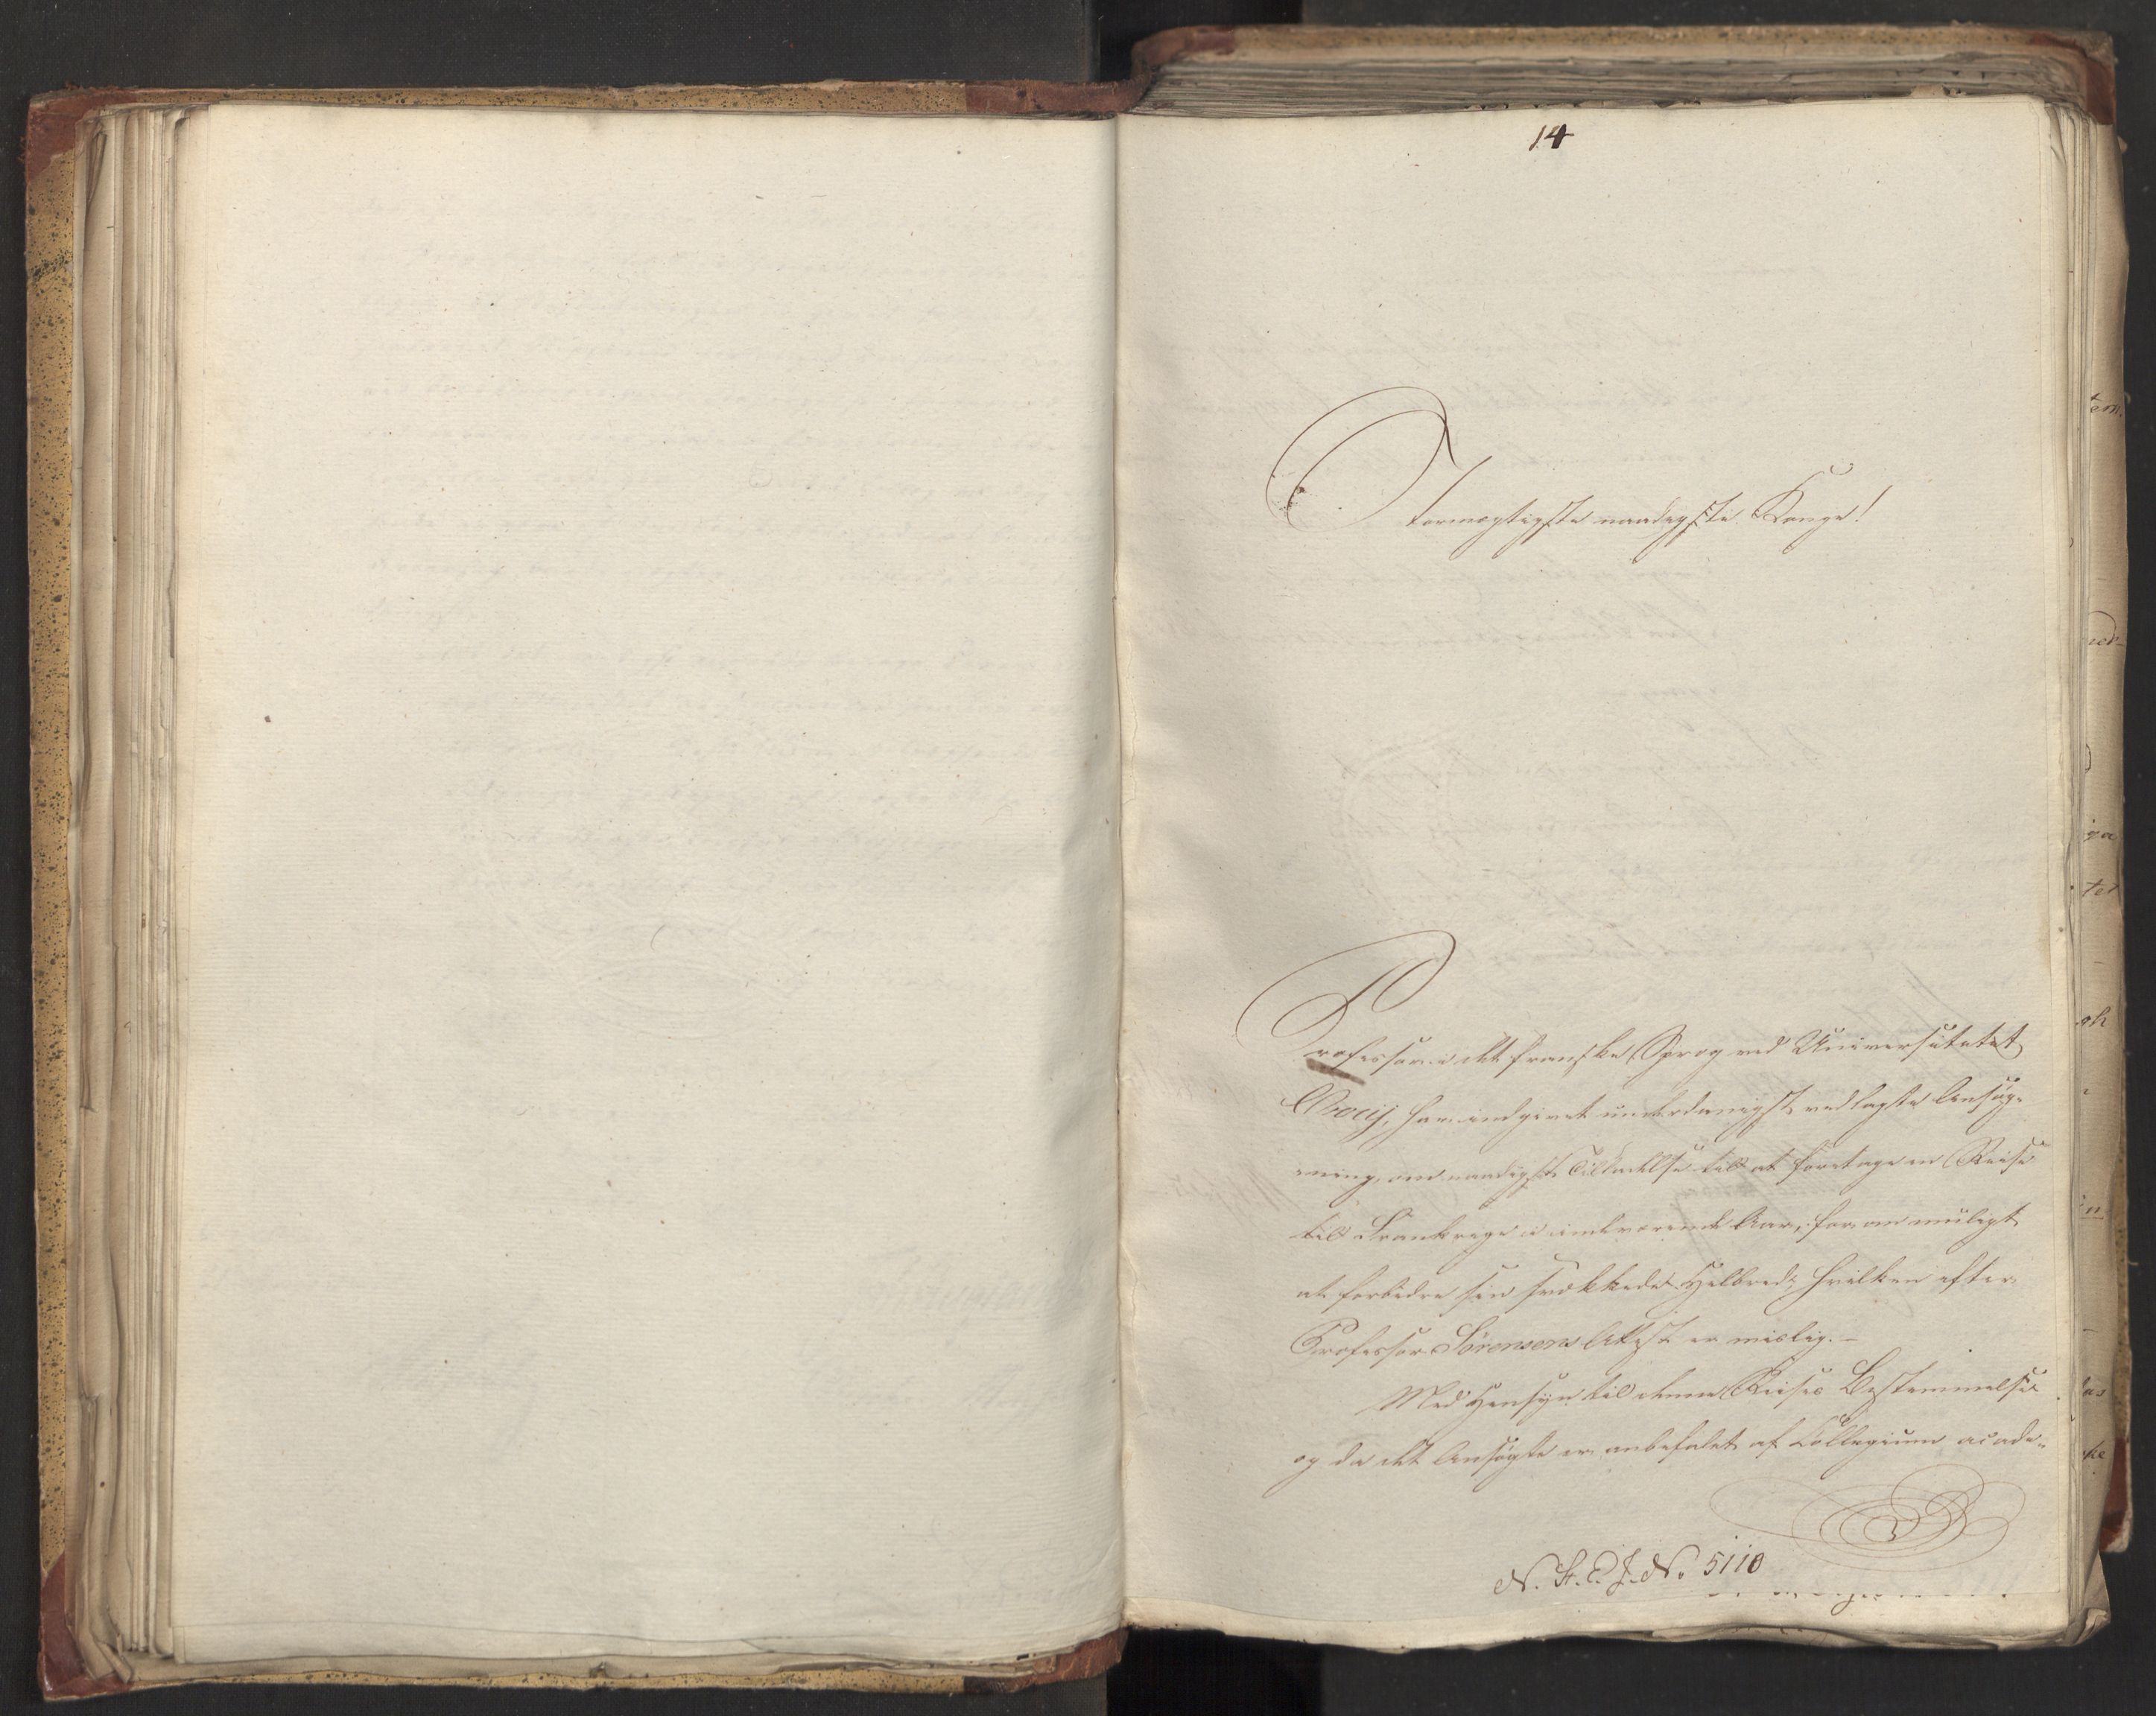 14
Stormægtigste naadigste Konge!
Professor i det franske Sprog ved Universitetet
Brocij, har indgivet underdanigst vedlagte Ansøg-
ning, om naadigste Tilladelse til at foretage en Reise
til Frankrige i indeværende Aar, for om muligt
at forbedre sin svækkede Helbred, hvilken efter
Professor Sörensens Attest er mislig.-
Med Hensyn til denne Reises Bestemmelse
og da det Ansøgte er anbefalet af Collegium acade-
N. St. E. J. No. 5110